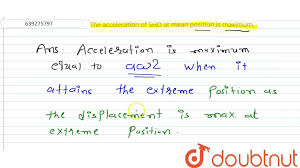 639275797
The acceleration of SHO at mean position is maximum.
Ans: Acceleration is maximum
equal to aω2 when it
attains the extreme position as
the displacement is max at
extreme position.
doubtnut